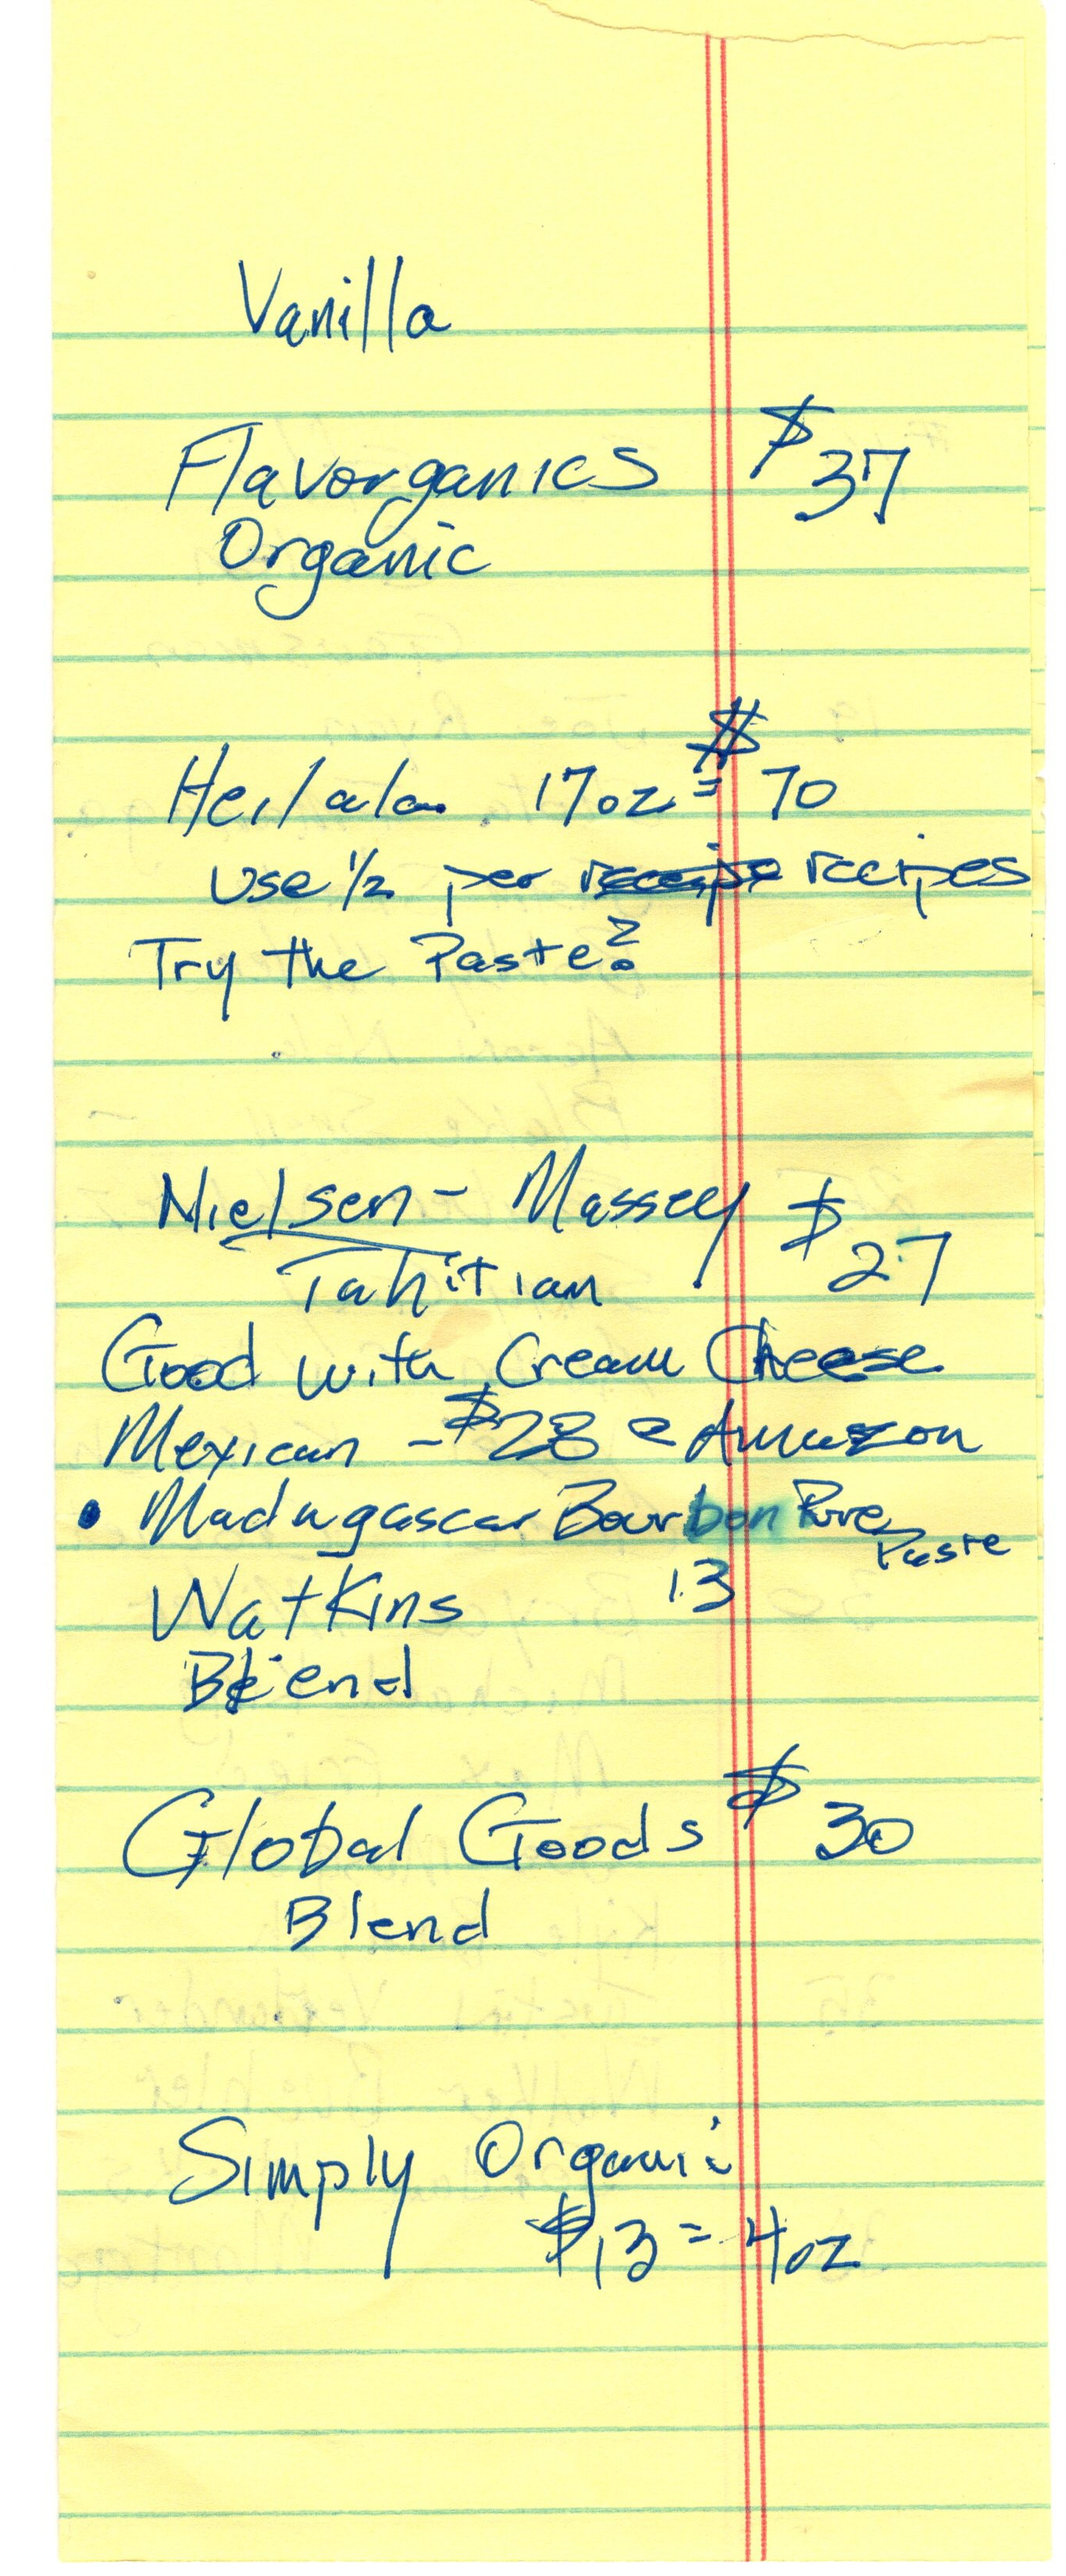 Vanilla
Flavorganics $37
Organic
Heilala 17oz = $70
Use 1/2 per receipe recipes
Try the Paste?
Nielsen-Massey $27
Tahitian
Good with Cream Cheese
Mexican - $28 @ Amazon
• Madagascar Bourbon Pure Paste
Watkins 13
Blend
Global Goods $30
Blend
Simply Organic
$13 = 4oz